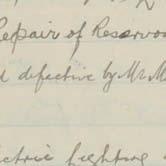 Repair of Reservo
d defective by Mr M
ctric fighting